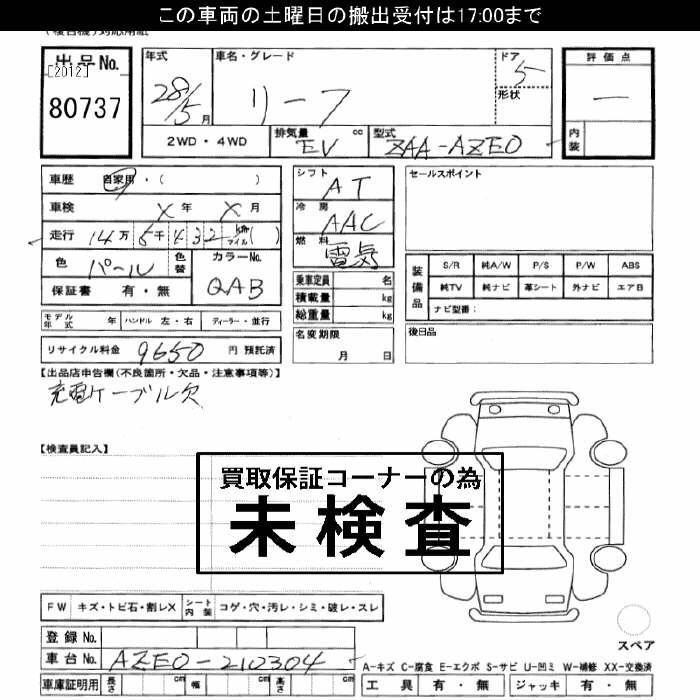 この車両の土曜日の搬出受付は17:00まで
出品No.
[2012]
80737
年式
28/5月
車名・グレード
リーフ
ドア
5
形状
評価点
―
内装
2WD・4WD
排気量 EV cc
型式 ZAA-AZEO
車歴 自家用・( )
車検 X年 X月
走行 14万 5千432 km マイル( )
色 パール 色替
カラーNo. QAB
保証書 有・無
シフト AT
冷房 AAC
燃料 電気
乗車定員 名
積載量 kg
総重量 kg
名変期限
月 日
セールスポイント
装備品
S/R 純A/W P/S P/W ABS
純TV 純ナビ 革シート 外ナビ エアB
ナビ型番：
後日品
モデル年式 年 ハンドル 左・右 ディーラー・並行
リサイクル料金 9650 円 預託済
【出品店申告欄(不良箇所・欠品・注意事項等)】
充電ケーブル欠
【検査員記入】
買取保証コーナーの為
未検査
FW キズ・トビ石・割レX シート内装 コゲ・穴・汚レ・シミ・破レ・スレ
スペア
登録No.
車台No. AZEO-210304
A-キズ C-腐食 E-エクボ S-サビ U-凹ミ W-補修 XX-交換済
車庫証明用 長さ cm 幅 cm 高さ cm
工具 有・無 ジャッキ 有・無